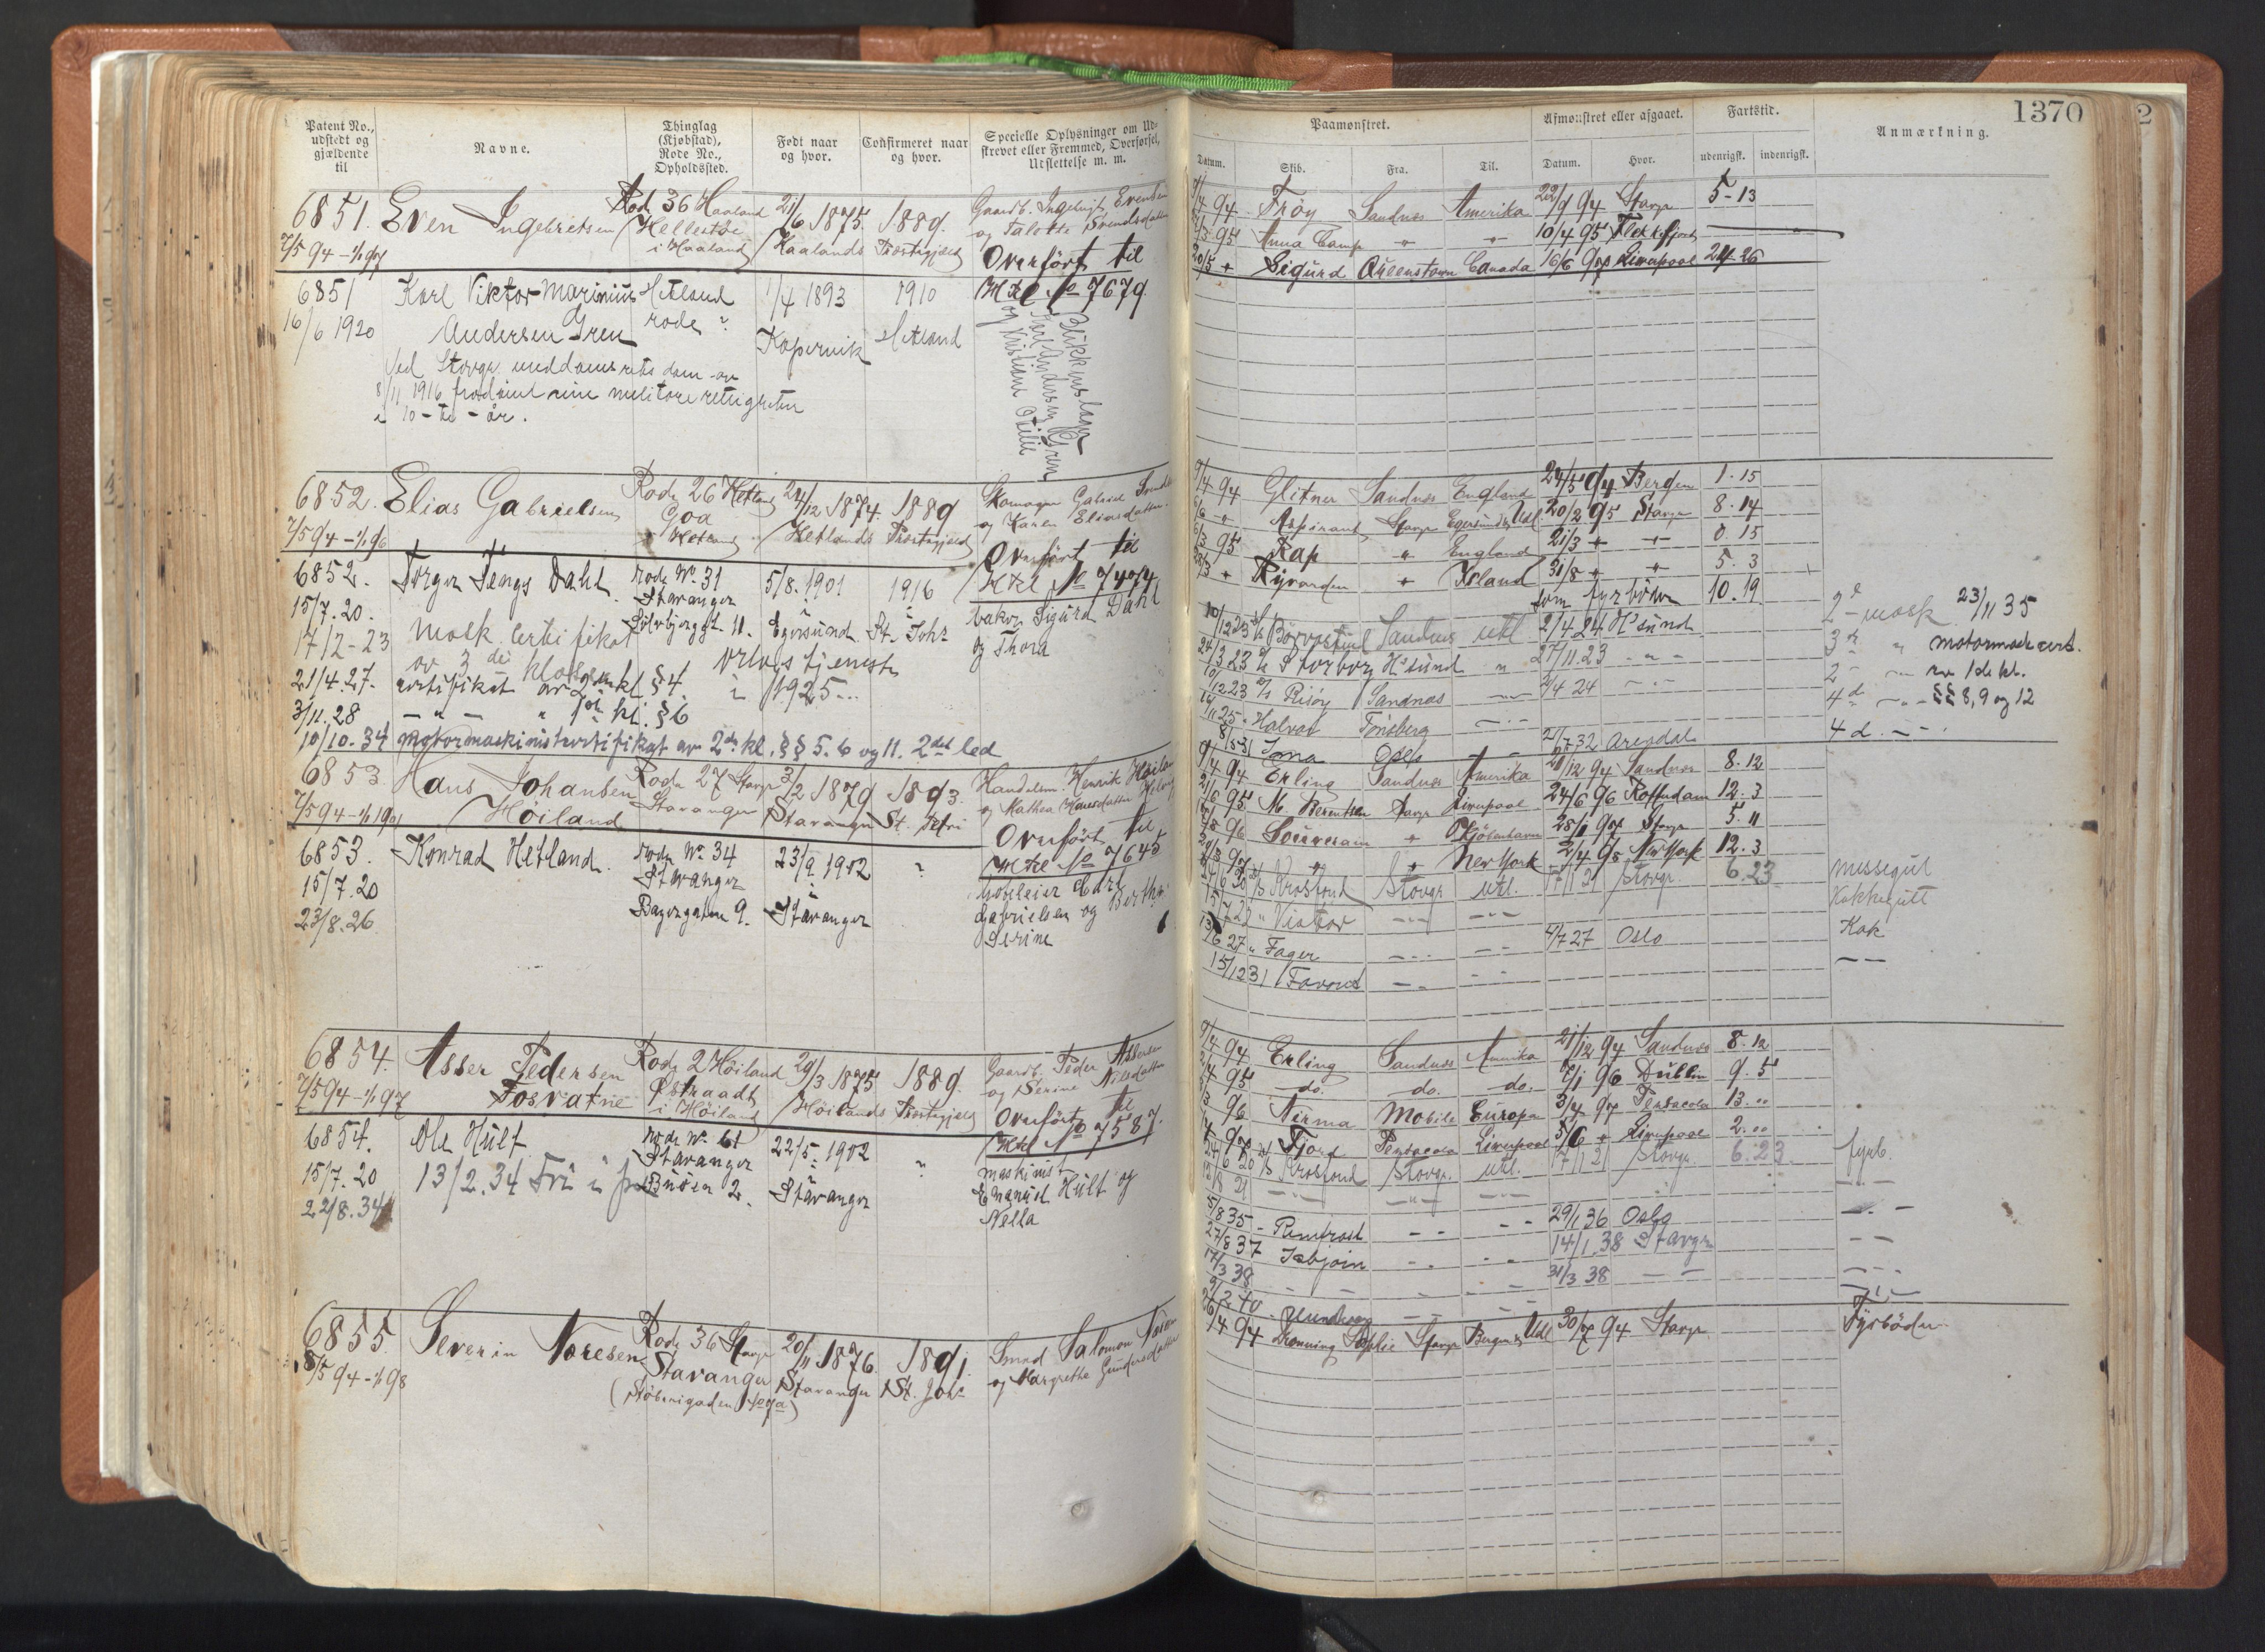 Patent No., udstedt og gjældende til
Navne.
Thinglag (Kjøbstad), Rode No., Opholdssted.
Født naar og hvor.
Confirmeret naar og hvor.
Specielle Oplysninger om Udskrevet eller Fremmed, Overførsel, Udslettelse m. m.
6851. Even Ingebretsen Rode 36 Haaland 21/6 1875. 1889. Gaardb. Ingebrigt Evensen
7/5 94 - Hellestø i Haaland Haalands Præstegjeld og Talette Svendsdatter
Overført til
Htl No 7679.
6851 Karl Viktor Marinius Hetland 1/4 1893 1910
16/6 1920 Andersen Gren rode ? Kopervik Hetland
Blikkenslager
Karl Andersen Gren
og Kristiane Otilie
Ved Stavgr. meddomsrets dom av
8/11 1916 fradømt sine militære rettigheter
i 10 - ti - år.
6852. Elias Gabrielsen Rode 26 Hetland 24/12 1874. 1889 Skomager Gabriel
7/5 94 - 1/1 96 Goa Hetlands Præstegjeld og Karen Eliasdatter
Overført til
Htl No 7474
6852. Torger Tengs Dahl. rode No. 31 5/8. 1901 1916 baker Sigurd Dahl
15/7. 20. Stavanger Egersund St. Joh. og Thora
17/2 - 23 Mask. certifikat
av 3 die klasse
21/4. 27. certifikat av 2 kl § 4. i 1925...
3/11. 28 - " - " 1ste kl. § 6
10/10. 34 motormaskinistcertifikat av 2den kl. §§ 5. 6 og 11. 2det led
6853 Hans Johansen Rode 27 Stavgr 3/2 1879 1893. Handelsm. Henrik Høiland
7/5 94 - 1/1 1901 Høiland Stavanger Stavanger St. Petri og Mathea Hansdatter
Overført til
Htl No 7645
6853. Konrad Hetland. rode No. 34 23/9 1902 ?
15/7. 20 Stavanger Carl
23/8. 26 Bagergaten 9. Stavanger Gabrielsen og Berthe
Serine
6854. Asser Pedersen Rode 2 Høiland 29/3 1875 1889. Gaardb. Peder Assersen
7/5 94 - 1/1 97 Fosvatne Østraadt i Høiland Høilands Præstegjeld og Serine Nilsdatter
Overført til
Htl No 7587.
6854. Ole Hült rode No. 61 22/5. 1902 " maskinist
15/7. 20 13/2. 34 Stavanger Stavanger Emanuel Hült og
22/8. 34 Nella
6855. Severin Næresen Rode 36 Stavgr 20/11 1876. 1891. Smed Salomon
8/5 94 - 1/1 98 Stavanger Stavanger St. Joh. og Margrethe Gundersdatter
(Støberigaden
1370
2
Paamønstret.
Afmønstret eller afgaaet.
Fartstid.
Anmærkning.
Datum. Skib. Fra. Til. Datum. Hvor. udenrigsk. indenrigsk.
7/4 94 Frøy Sandnes Amerika 22/9 94 Stavgr 5-13
Anna Camp " " 10/4 95 Flekkefjord
20/5 " Sigurd Queenstown Canada 16/6 97 Liverpool 24-26
9/4 94 Glitner Sandnes England 24/5 94 Bergen 1. 15
Aspirant Stavgr Egersund & Udl 20/2 95 Stavgr 8. 14
6/3 95 Kap " England 21/3 " " 0. 15
28/3 " Ryvarden " Island 31/8 " " 5. 3
som fyrbøder 10. 19
10/12 23 Sandnes utl 2/4 24 H'sund
24/3 23 Storborg H'sund " 27/11. 23 - " -
10/12 23 Risøy Sandnes 2/4 24
11 25 - Halvar Tønsberg
8/5 31 Oslo 2/7 32 Arendal
2e mask 23/11 35
3de " motormask cert.
2 - av 1ste kl.
4de §§ 8, 9 og 12
4 d.
9/4 94 Erling Sandnes Amerika 21/12 94 Sandnes 8. 12
21/6 95 M. Berentsen Stavgr Liverpool 24/6 96 Rotterdam 12. 3
Souvenir " Kjøbenhavn 28/1 97 Stavgr 5. 11
" " New York 2/4 98 New York 12. 3
24/6 20 Krosfond Stavgr. utl. 17/1 21 Stavgr. 6. 23 messegut
15/7 23 " Vestor Kokkegutt
27 " Fager 4/7 27 Oslo Kok
15/12 31 Favorit
9/4 94 Erling Sandnes Amerika 21/12 94 Sandnes 8. 12
95 do. do. do. 7/1 96 Dublin 9. 5
96 Nerma Mobile Europa 3/4 97 Pensacola 13. "
97 Fjord Pensacola Liverpool 5/6 " Liverpool 2. "
24/6 20 Krosfond Stavgr. utl. 17/1 21 Stavgr. 6. 23 fyrb.
5/8 35 - 29/1 36 Oslo
27/8 37 14/1. 38 Stavgr
17/3 38 31/3 38
9/2 40
26/4 94 Dronning Sophie Stavgr Bergen & Udl 30/7 94 Stavgr Fyrbøder